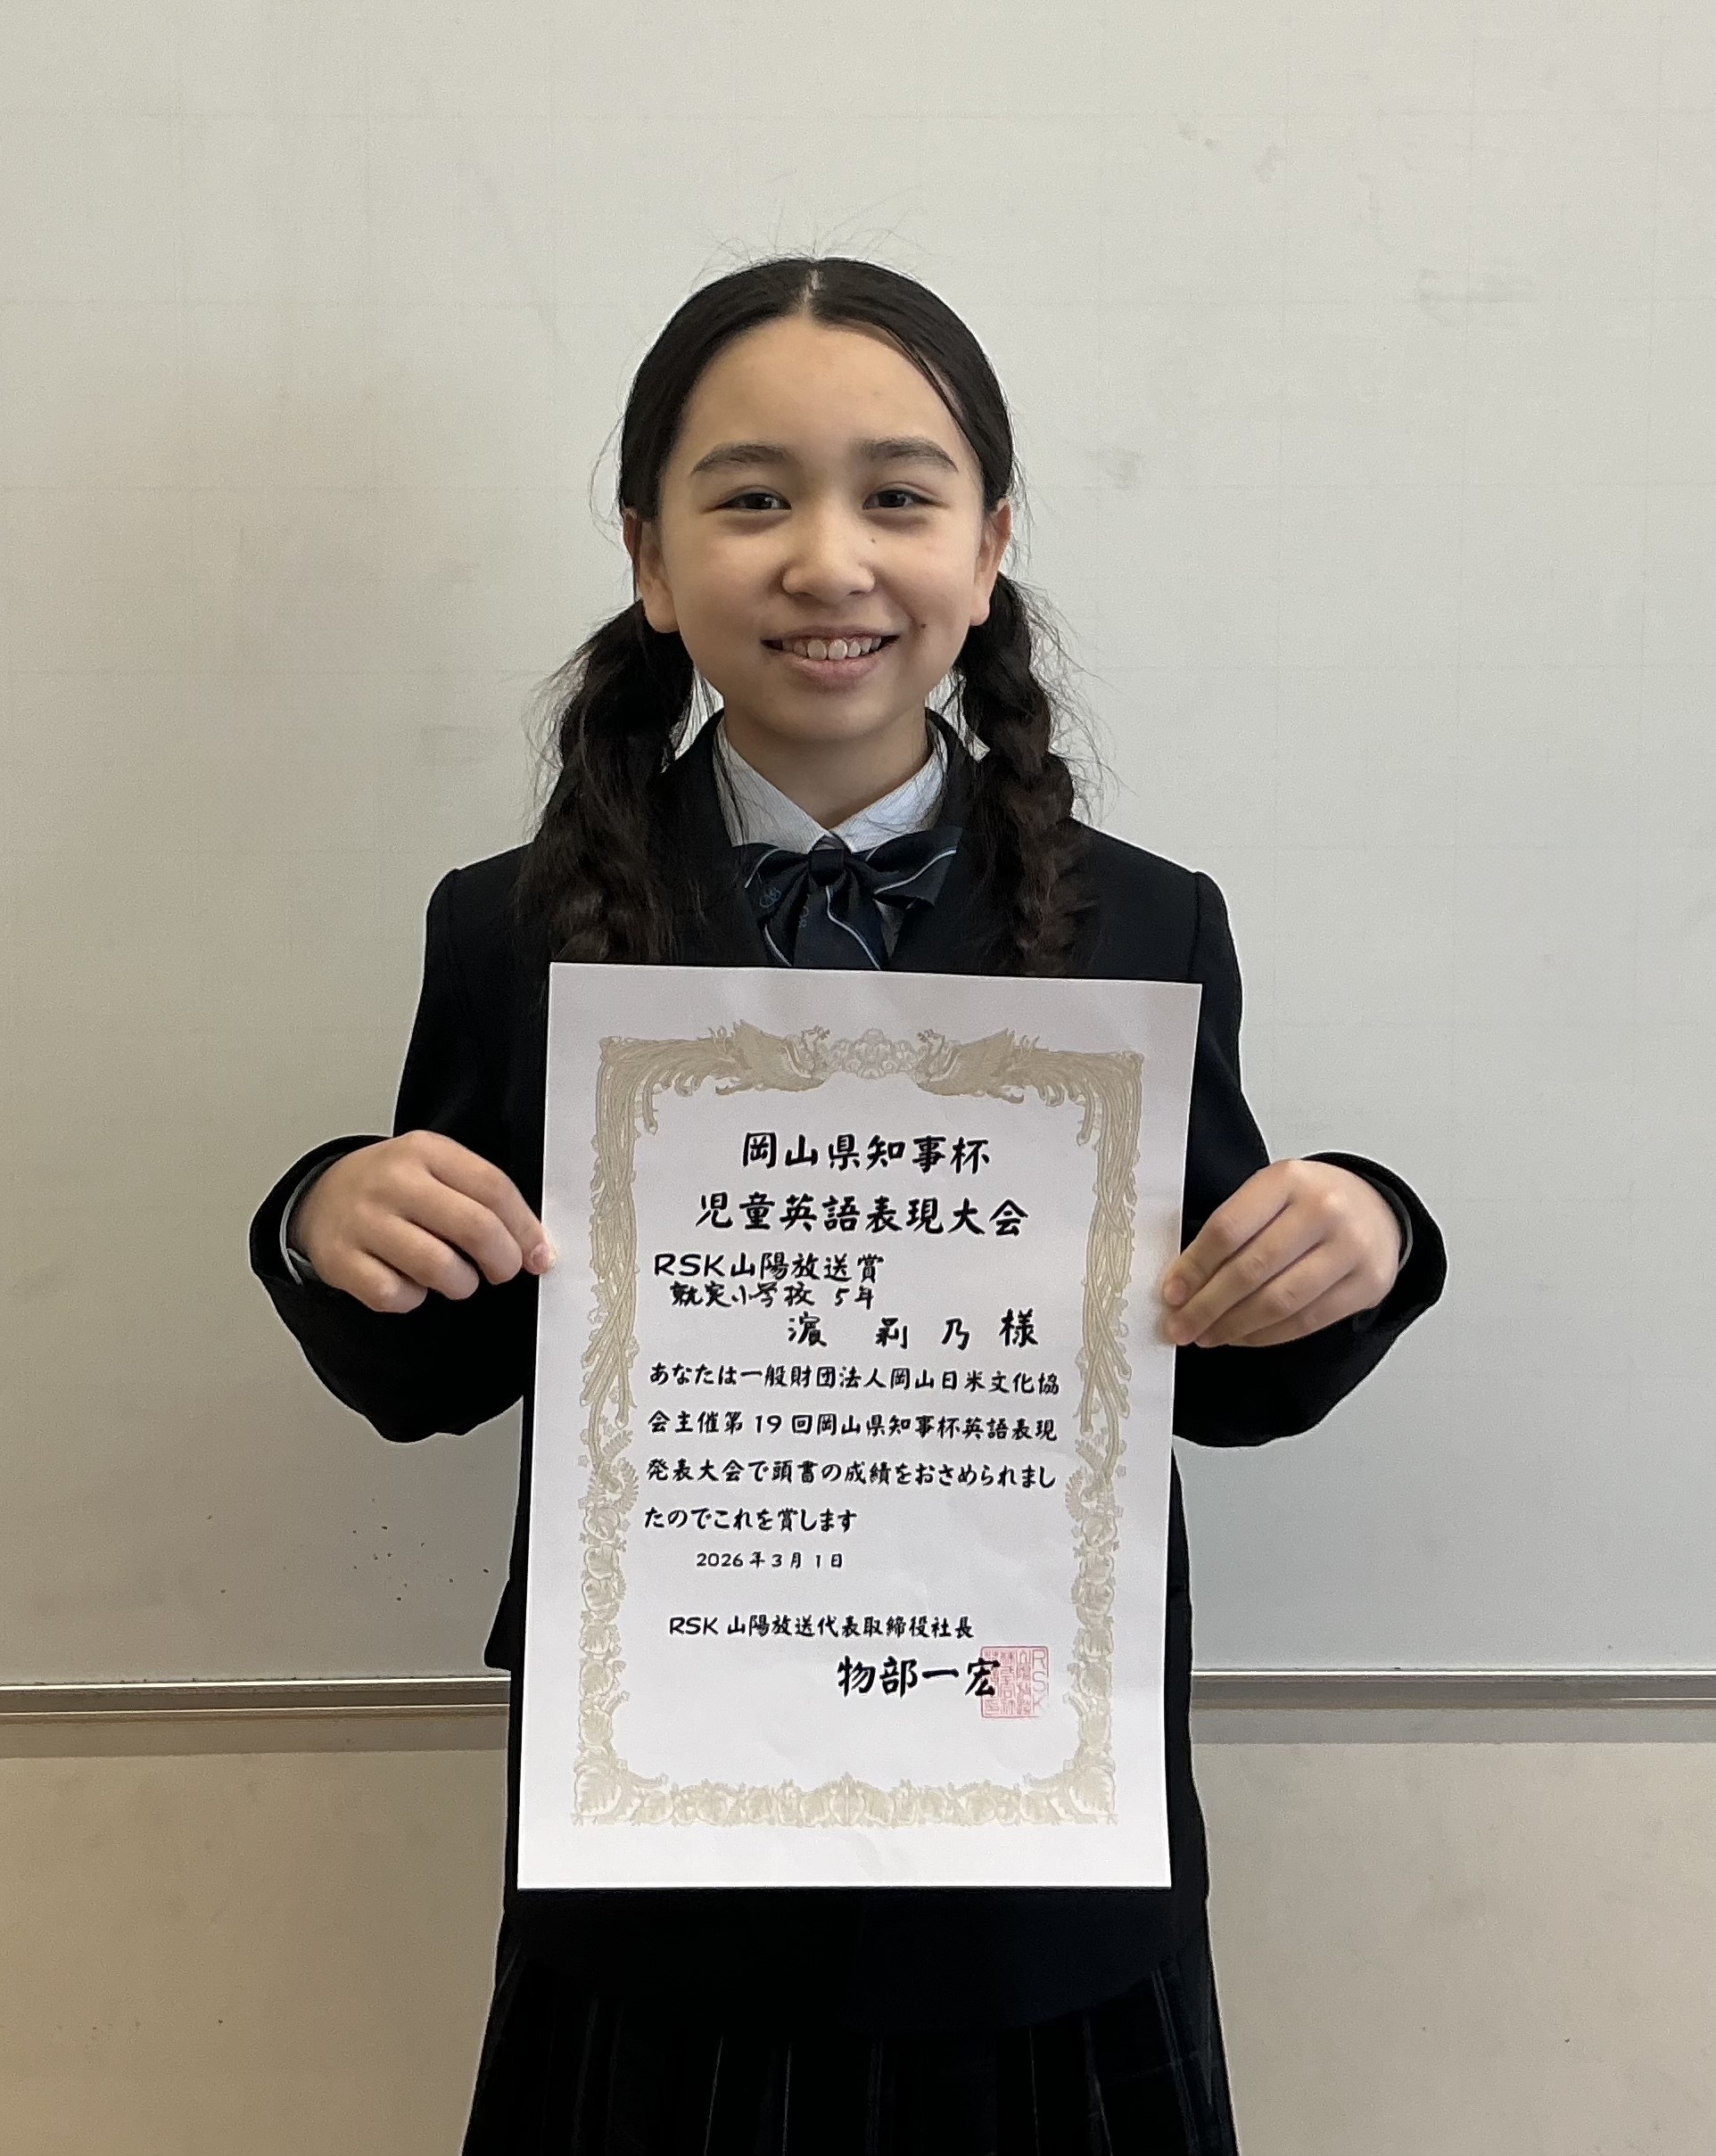 岡山県知事杯
児童英語表現大会
RSK山陽放送賞
就実小学校 5年
濵 莉乃 様
あなたは一般財団法人岡山日米文化協
会主催第19回岡山県知事杯英語表現
発表大会で頭書の成績をおさめられまし
たのでこれを賞します
2026年3月1日
RSK山陽放送代表取締役社長
物部一宏
RSK